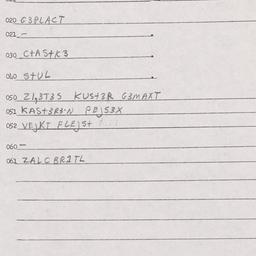 020 G3PLACT
021 –
030 CtASTK3
040 StUL
050 Z1,3T3S KUSt3R G3MAXT
051 KASt3R3·N P0jS3X
052 VEjKT FLEjSt
060 –
061 ZALC BR2TL